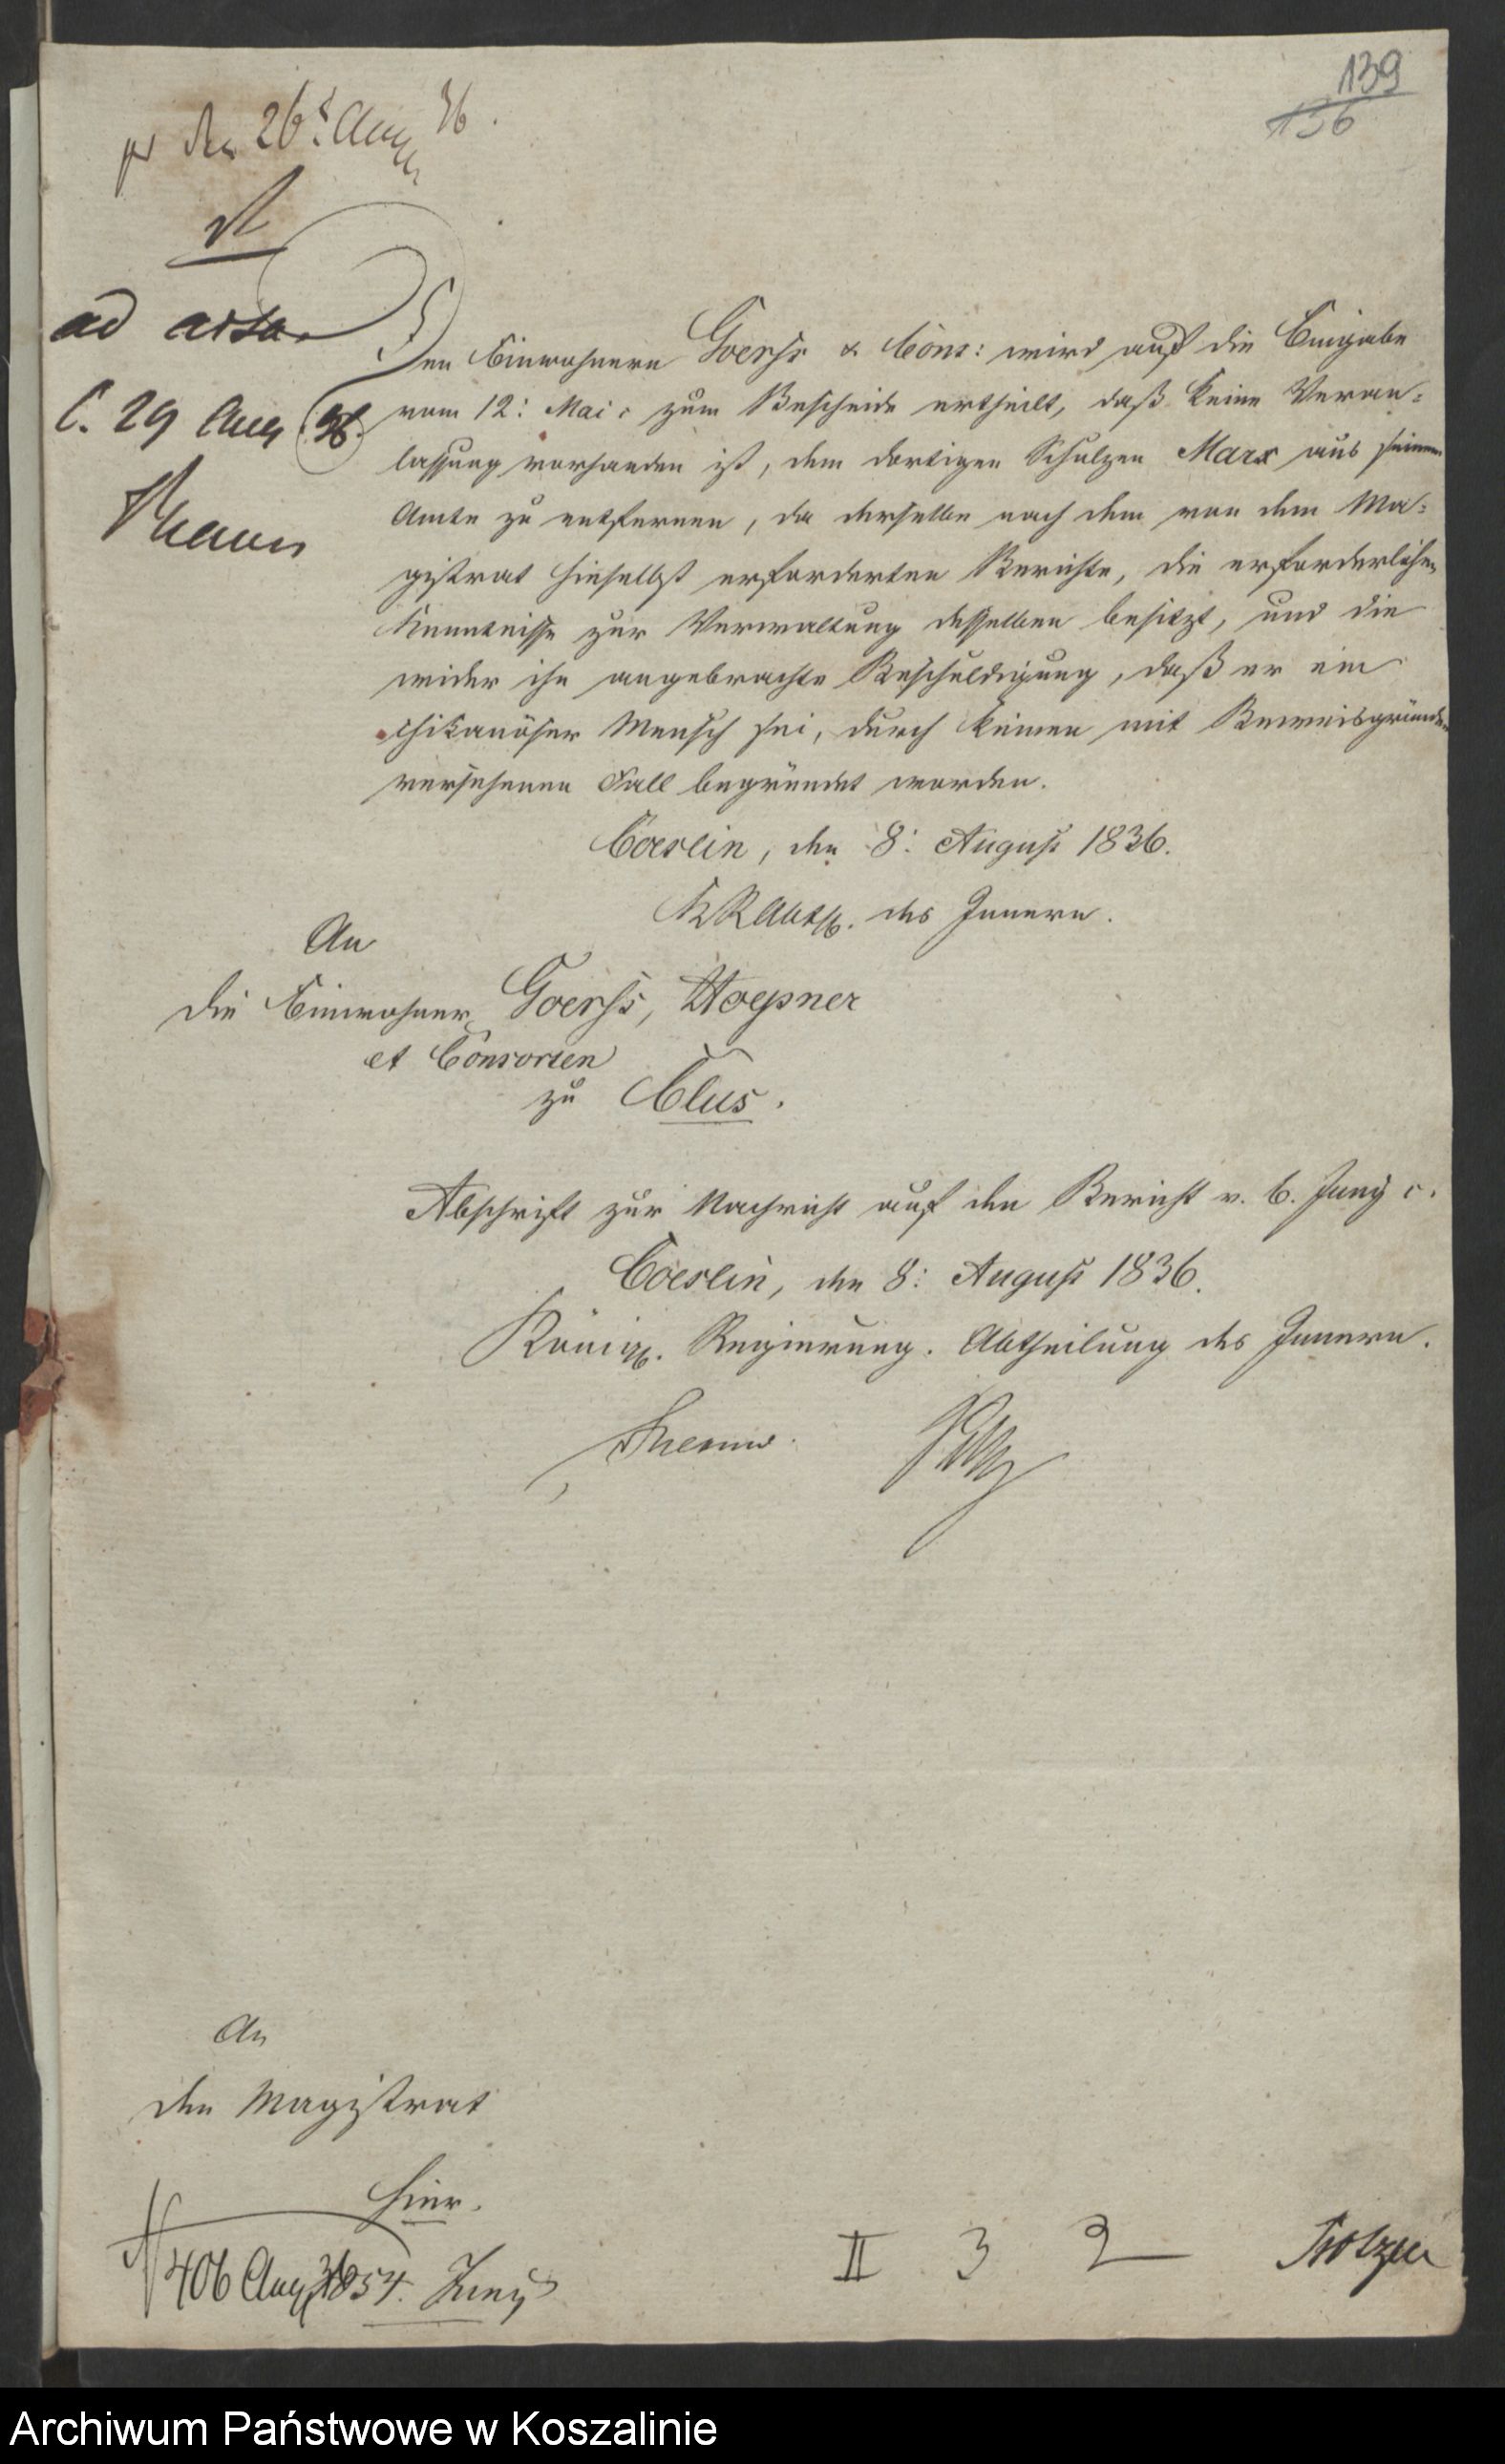 139
136
pr den 26t Aug 36.
ad acta
C. 29 Aug 36.
Den Einwohnern Goerss & Cons: wird auf die Eingabe
vom 12: Mai c zum Bescheide ertheilt, daß keine Veran=
lassung vorhanden ist, den dortigen Schulzen Marx aus seinem
Amte zu entfernen, da derselbe nach dem von dem Ma=
gistrat hieselbst erforderten Berichte, die erforderlichen
Kenntnisse zur Verwaltung desselben besitzt, und die
wider ihn angebrachte Beschuldigung, daß er ein
chikanöser Mensch sei, durch keinen mit Beweisgründen
versehenen Fall begründet worden.
Coeslin, den 8: August 1836.
KRAbth. des Innern.
An
die Einwohner Goerss, Hoepner
et Consorten
zu Clus.
Abschrift zur Nachricht auf den Bericht v. 6. Juny c.
Coeslin, den 8: August 1836.
Königl. Regierung. Abtheilung des Innern.
An
den Magistrat
hier.
406 Aug 36
854. Juny
II 3 2
Archiwum Państwowe w Koszalinie